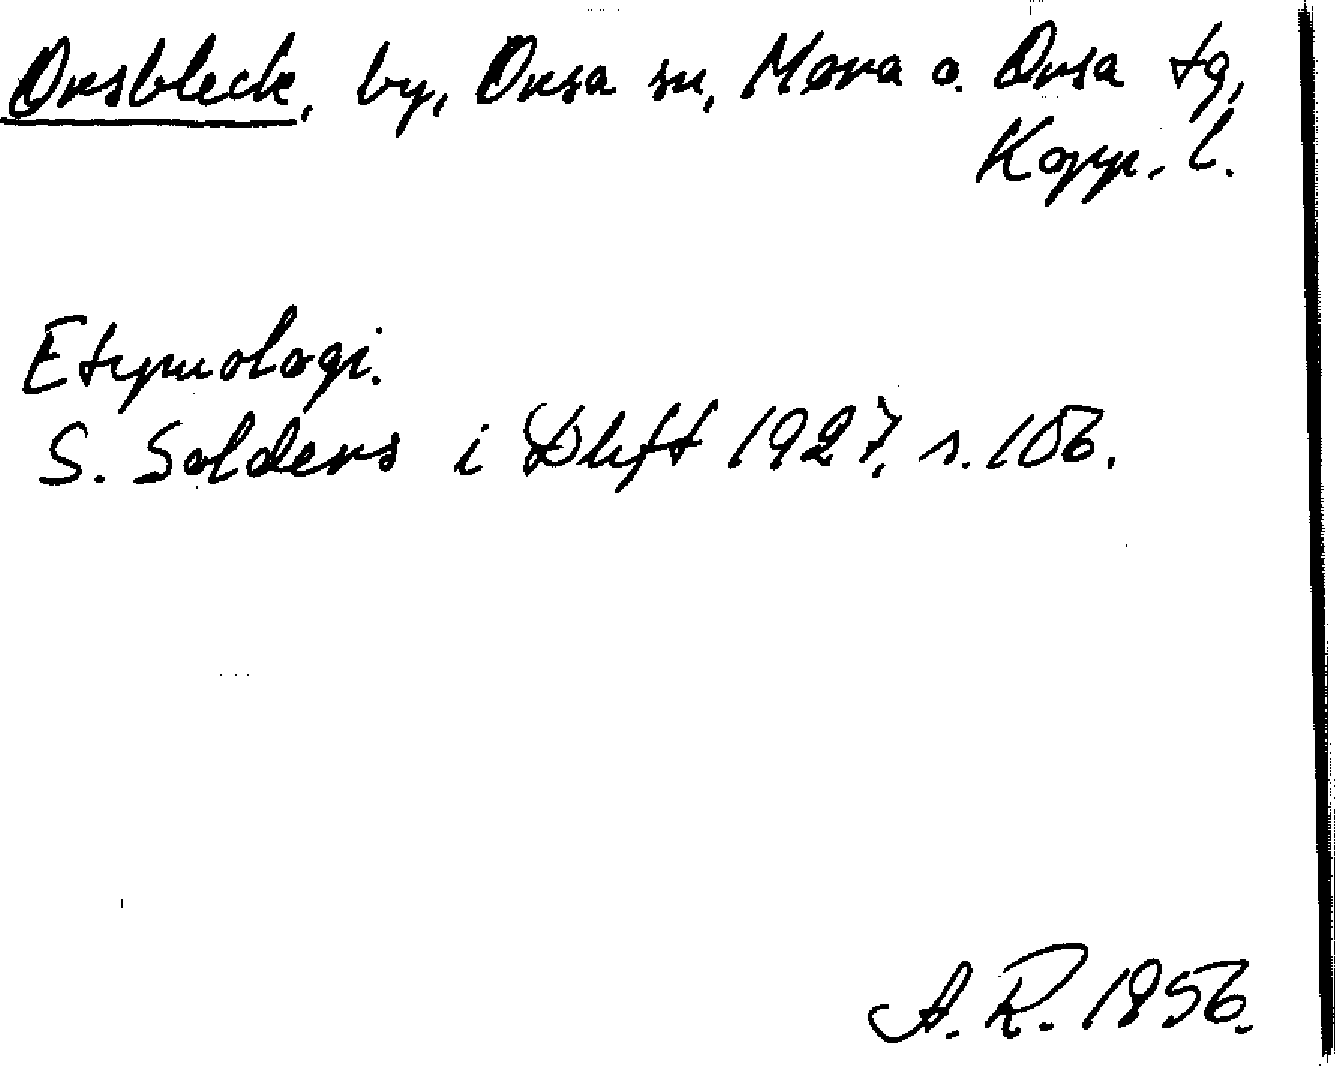 Orsbleck, by, Orsa sn, Mora o. Orsa tg,
Kopp. l.
Etymologi.
S. Solders i Dlhft 1927, s. 106.
A. R. 1956.